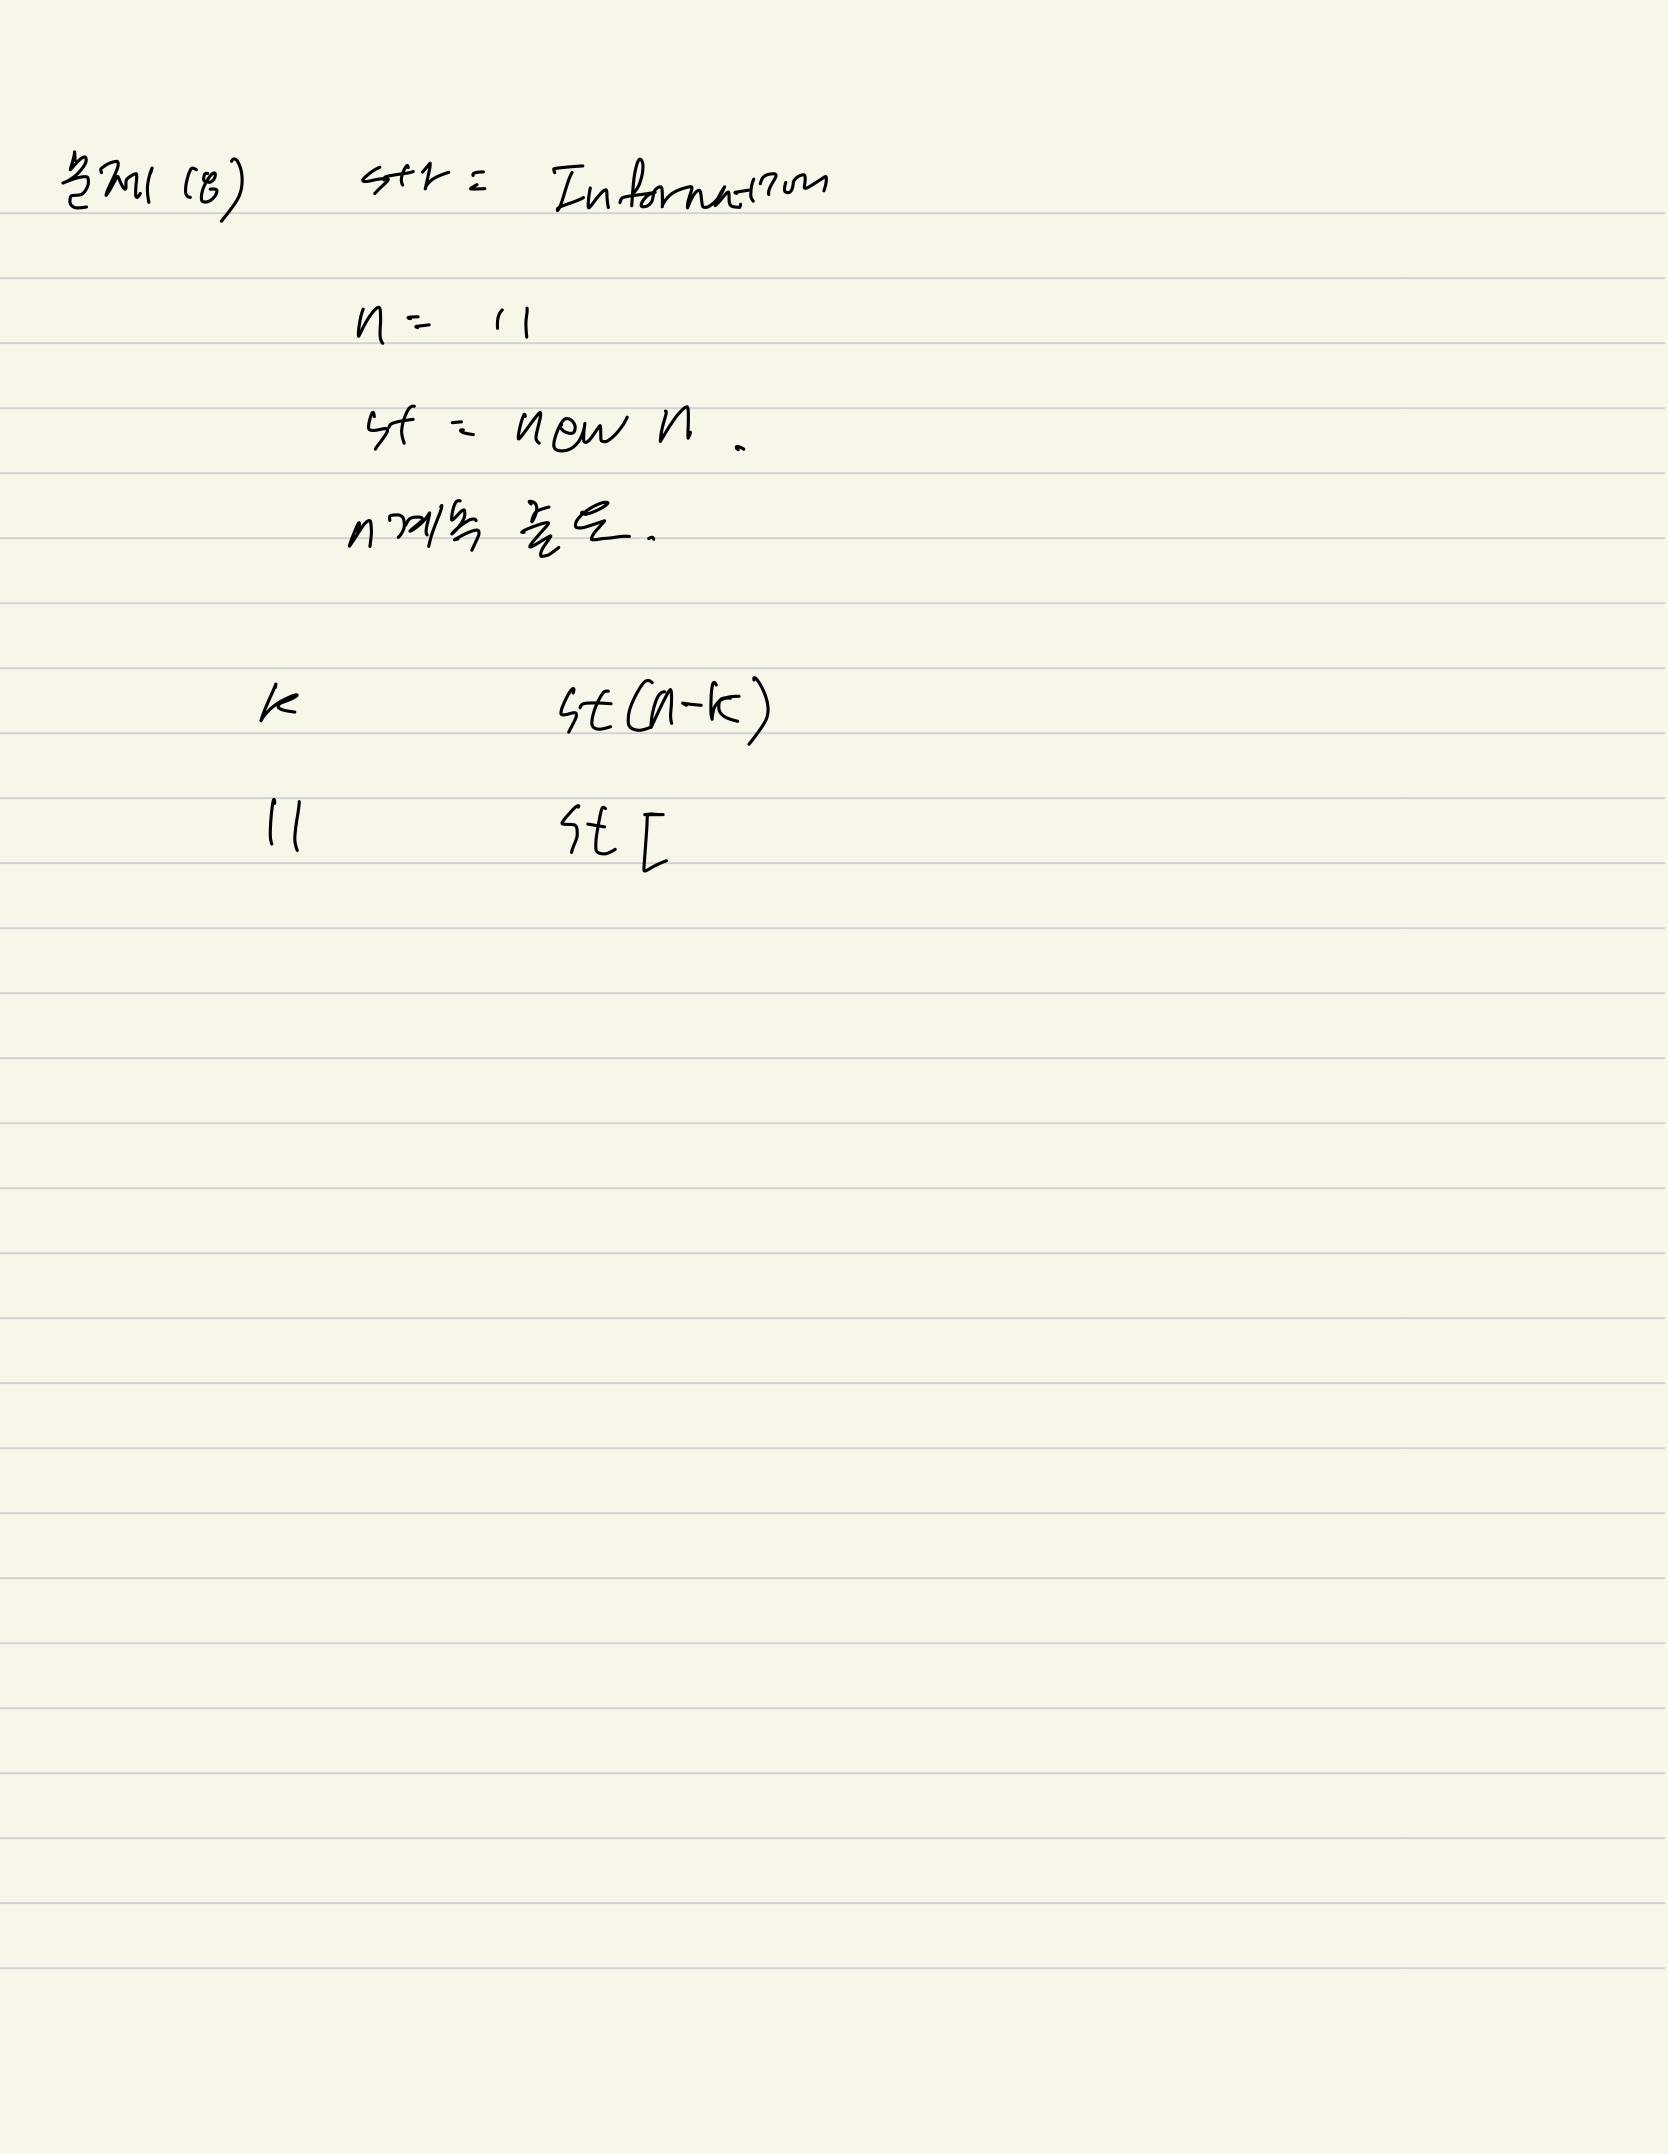 문제 (8) str = Information
n = 11
st = new n.
n 계속 줄도.
k st(n-k)
11 st [